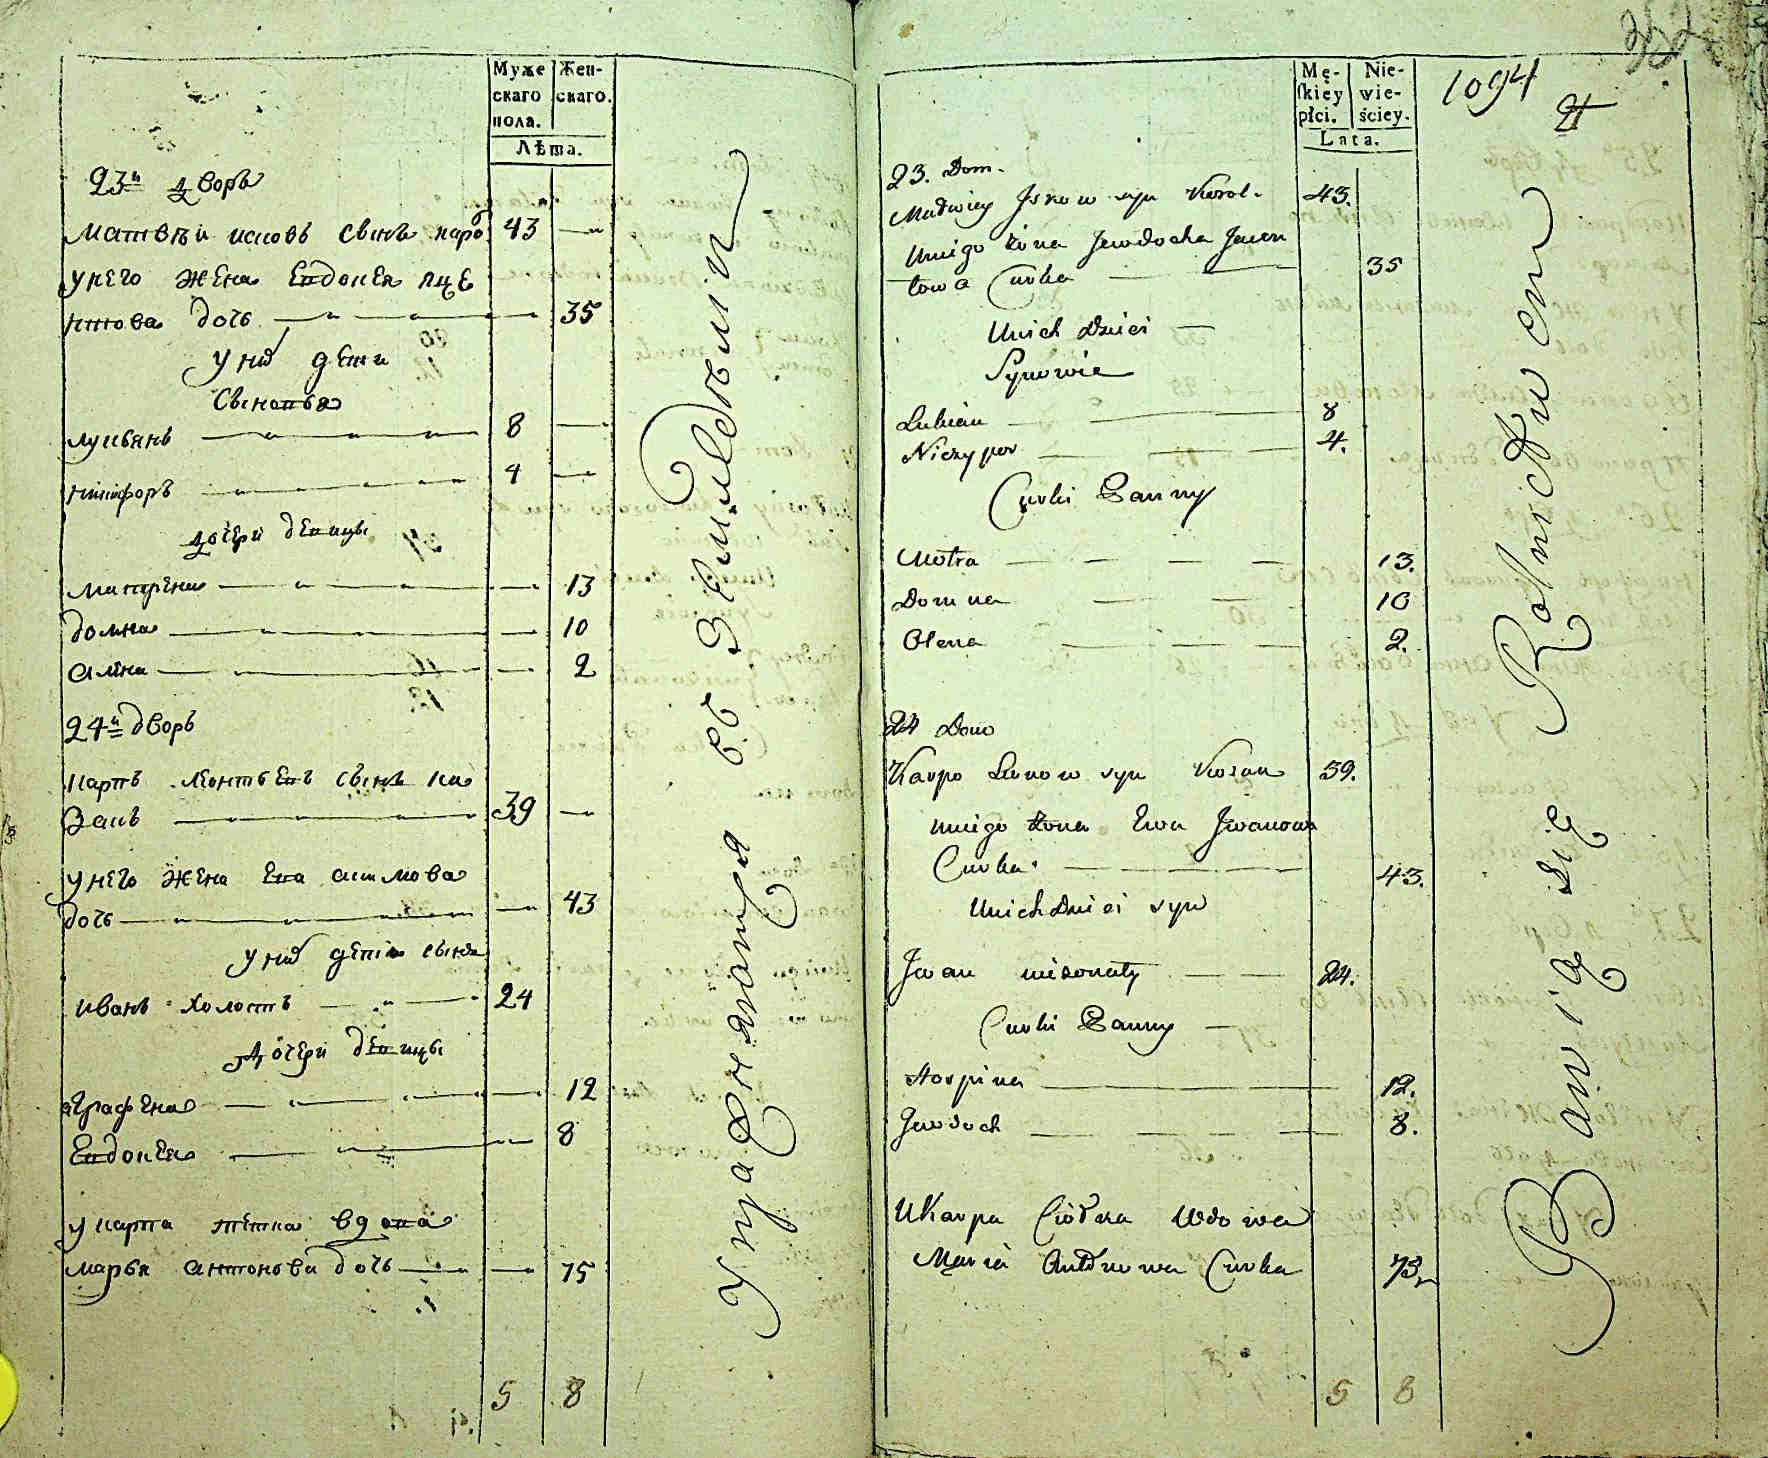 Муже
скаго
пола.
Жен-
скаго.
Лѣта.
23й дворъ
Матвѣй исковъ сынъ 43
унего жена Евдокея
дочь 35
у них дети
Сыновья
лукьянъ 8
никифоръ 4
дочери девицы
матрена 13
домна 10
алена 2
24й дворъ
Карпъ леонтьевъ сынъ ка
закъ 39
унего жена Ева
дочь 43
у них дети сынъ
иванъ холостъ 24
дочери девицы
аграфена 12
Евдокея 8
у карпа тетка вдова
марья антонова дочь 75
5 8
Упражняютця въ Земледѣлии
1094
Mę-
ſkiey
płci.
Nie-
wie-
ściey.
Lata.
23. Dom.
Matwiey Jskow syn 43.
Uniego żona Jewdocha
towa Curka 35
Unich Dzieci
Synowie
Lukian 8
Niczypor 4.
Curki Panny
Motra 13.
Domna 10
Olena 2.
24 Dom
Karpo Lewow syn Kozak 39.
uniego żona Ewa Jwanowa
Curka 43.
Unich Dzieci syn
Jwan nieżonaty 24.
Curki Panny
Horpina 12.
Jewdoch 8.
UKarpa Ciotka Wdowa
Maria Antonowa Curka 73
5 8
Bawią się Rolnictwem